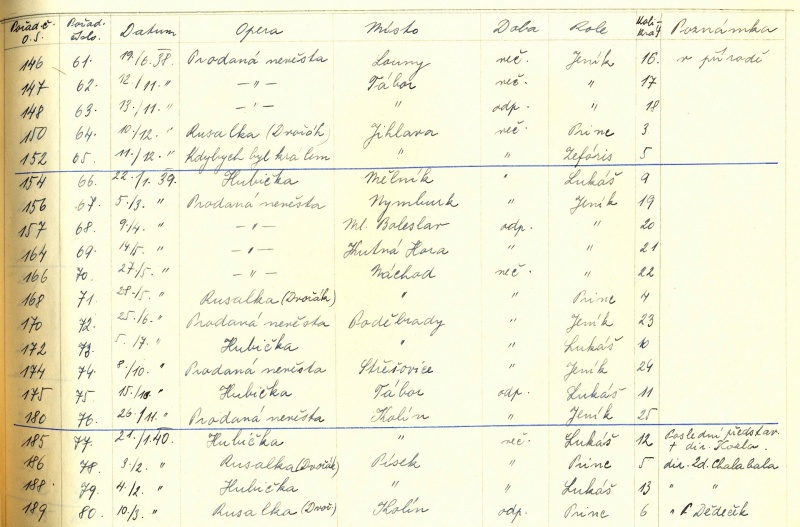 Pořad.č. O.S. Pořad. číslo. Datum Opera Místo Doba Role Koli-krát Poznámka
146 61. 19./6. 38. Prodaná nevěsta Louny več. Jeník 16. v přírodě
147 62. 12/11. " — " — Tábor več. " 17
148 63. 13./11. " — " — " odp. " 18
150 64. 10/12. " Rusalka (Dvořák) Jihlava več. Princ 3
152 65. 11./12. " Kdybych byl králem " " Zefóris 5
154 66. 22./1. 39. Hubička Mělník " Lukáš 9
156 67. 5./3. " Prodaná nevěsta Nymburk " Jeník 19
157 68. 9/4. " — " — Ml. Boleslav odp. " 20
164 69. 14/5. " — " — Kutná Hora " " 21
166 70. 27/5. " — " — Náchod več. " 22
168 71. 28./5. " Rusalka (Dvořák) " " Princ 4
170 72. 25./6. " Prodaná nevěsta Poděbrady " Jeník 23
172 73. 5./7. " Hubička " " Lukáš 10
174 74. 8./10. " Prodaná nevěsta Střešovice " Jeník 24
175 75. 15./11. " Hubička Tábor odp. Lukáš 11
180 76. 26./11. " Prodaná nevěsta Kolín " Jeník 25
185 77. 21./1.40. Hubička " več. Lukáš 12 Poslední představ. + dir.
186 78. 3/2. " Rusalka (Dvořák) Písek " Princ 5 dir. Zd. Chalabala
188. 79. 4./2. " Hubička " " Lukáš 13 " "
189 80. 10/3. " Rusalka (Dvoř.) Kolín odp. Princ 6 " Dědeček